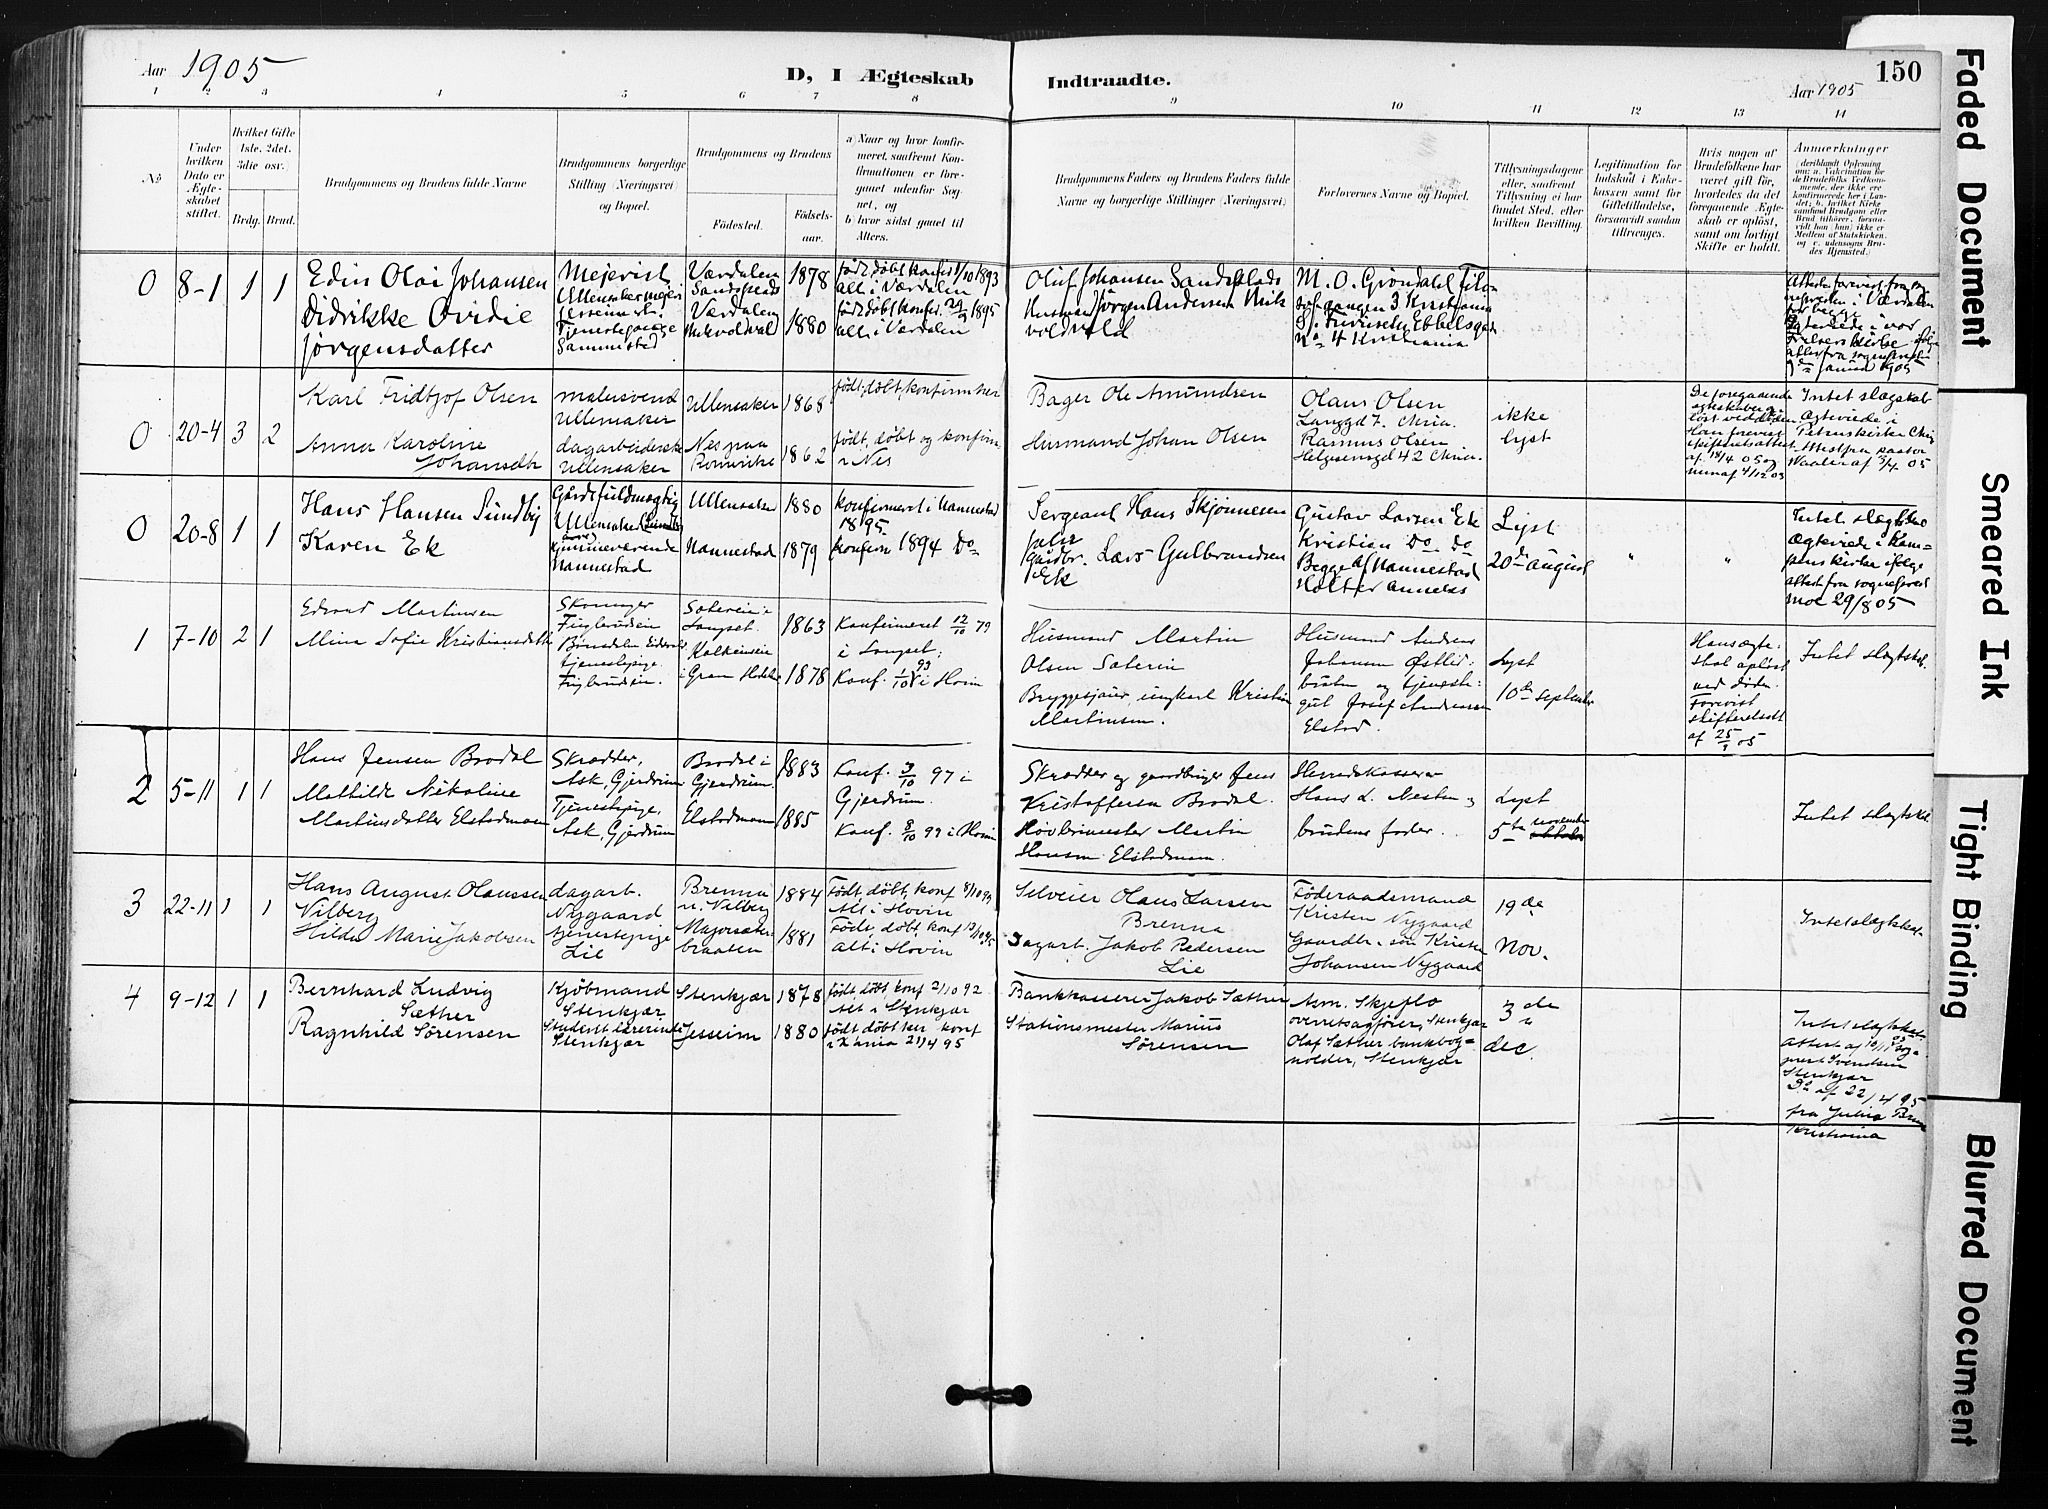 Aar 1905
D, I Ægteskab Indtraadte.
Aar 1905
150
1 2 3 4 5 6 7 8 9 10 11 12 13 14
No
Under hvilken Dato er Ægteskabet stiftet.
Hvilket Gifte 1ste, 2det, 3die osv.
Brdg. Brud.
Brudgommens og Brudens fulde Navne
Brudgommens borgerlige Stilling (Næringsvei) og Bopæl.
Brudgommens og Brudens
Fødested.
Fødselsaar.
a) Naar og hvor konfirmeret, saafremt Konfirmationen er foregaaet udenfor Sognet, og
b) hvor sidst gaaet til Alters.
Brudgommens Faders og Brudens Faders fulde Navne og borgerlige Stillinger (Næringsvei)
Forlovernes Navne og Bopæl.
Tillysningsdagene eller, saafremt Tillysning ei har fundet Sted, efter hvilken Bevilling.
Legitimation for Indskud i Enkekassen samt for Giftetilladelse, forsaavidt saadan tiltrænges.
Hvis nogen af Brudefolkene har været gift før, hvorledes da det foregaaende Ægteskab er opløst, samt om lovligt Skifte er holdt.
Anmærkninger
(deriblandt Oplysning om: a. Vakcination for de Brudefolks Vedkommende, der ikke ere konfirmerede her i Landet; b. hvilket Kirkesamfund Brudgom eller Brud tilhører, forsaavidt han (hun) ikke er Medlem af Statskirken, og c. udensogns Brudes Hjemsted.)
0 8-1 1 1
Edin Olai Johansen
Didrikke Ovidie
Jørgensdatter
Mejerist
Ullensaker mejeri
Jessenest.
Tjenestepige
Sammested
Værdalen
Sandsplads
Værdalen
1878
1880
født døbt konfes 1/10 1893
alt i Værdalen
født døbt konfes. 29/9 1895
alt i Værdalen
Oluf Johansen Sandsplads
Husmand Jørgen Andersen Mik
voldvald
M. O. Grøndahl Filo
sofgangen 3 Kristiania
No 4 Kristiania
januar 1905
0 20-4 3 2
Karl Fridtjof Olsen
Anna Karoline
Johansdtr
malersvend
Ullensaker
dagarbeiderske
Ullensaker
Ullensaker
Nes paa
Romerike
1868
1862
født, døbt, konfirm her
født, døbt og konfirm
i Nes
Bager Ole Amundsen
Husmand Johan Olsen
Olaus Olsen
Langgd 7. Chria.
Rasmus Olsen
Helgesensgd 42 Chria.
ikke
lyst
De foregaaende
ægteskaber op
løst ved døden
af 18/4 05 og
hun af 4/12 03
Intet slægtskab
Ægtevirde i
Petruskirke Chria
Attest fra pastor
Waaler af 5/4 05
0 20-8 1 1
Hans Hansen Sundby
Karen Ek
Gårdsfuldmægtig
Ullensaker (Sundby
hjemmeværende
Nannestad
Ullensaker
Nannestad
1880
1879
konfirmeret i Nannestad
1895
konfirm 1894 Do
Sergeant Hans Skjønnesen
gårdbr. Lars Gulbrandsen
Ek
Gustav Larsen Ek
Kristian Do Do
Begge af Nannestad
Holter anneks
Lyst
20de august
" "
Intet slægtsk
Ægtevirde i Kam-
pens kirke ifølge
attest fra sogneprest
Moe 29/8 05
1 7-10 2 1
Edvard Martinsen
Mina Sofie Kristiansdatter
Skomager
Fuglerudeie
tjenestepige
Fuglerudeie.
Saterеie i
Langset.
Kalkenseie
i Gran Hadel
1863
1878
Konfirmeret 12/10 79
i Langset;
Konf. 1/10 93 i Hovin
Husmand Martin
Olsen Saterеie
Bryggesjauer, ungkarl Kristian
Martinsen.
Husmand Andreas
Johansen Østlid-
bruten og tjeneste-
gut Josef Andreasen
Elstad.
Lyst
10de September
Hans ægte-
skab opløst
ved døden.
Forevist
skifteattest
af 25/9 05
Intet slægtskab.
2 5-11 1 1
Hans Jensen Brodal
Mathilde Nikoline
Martinsdatter Elstadmoen
Skrædder,
Ask, Gjerdrum
Tjenestepige,
Ask, Gjerdrum
Brodal i
Gjerdrum.
Elstadmoen
1883
1885
Konf. 3/10 97 i
Gjerdrum.
Konf. 8/10 99 i Hovin
Skrædder og gaardbruger Jens
Kristoffersen Brodal.
Hovbrimester Martin
Hansen Elstadmoen.
Herredskasserer
Hans L. Nesten og
brudens fader.
Lyst
5te november
Intet slægtsk.
3 22-11 1 1
Hans August Olaussen
Vilberg
Hilda Marie Jakobsen
dagarb.
Nygaard
tjenestepige
Lie
Brenna
u. Vilberg
Majorsæter
braaten
1884
1881
Født, døbt, konf 8/10 99
Alt i Hovin
Føde, døbt, konf 13/10 95
alt i Hovin
Selveier Olaus Larsen
Brenna
Dagarb. Jakob Pedersen
Lie
Føderaadsmand
Kristen Nygaard
Gaardbr. søn Kristen
Johansen Nygaard
19de
Nov.
Intet slægtskab
4 9-12 1 1
Bernhard Ludvig
Sæther
Ragnhild Sørensen
Kjøbmand
Stenkjær
Student lærerinde
Stenkjær
Stenkjær
Jesseim
1878
1880
født, døbt, konf 2/10 92
Alt i Stenkjær
født døbt her, konf
i X'ania 21/4 95
Bankkasserer Jakob Sæther
Stationsmester Marius
Sørensen
Asm. Skjeflo
overretssagfører, Stenkjær
Olaf Sæther bankbog-
holder, Stenkjær
3de
"
dec.
Intet slægtskab
Attest af 10/11 05 sog-
neprest Svendsen
Stenkjær
Do af 22/4 95
fra Julius Bruun
Kristiania
Faded Document
Smeared Ink
Tight Binding
Blurred Document